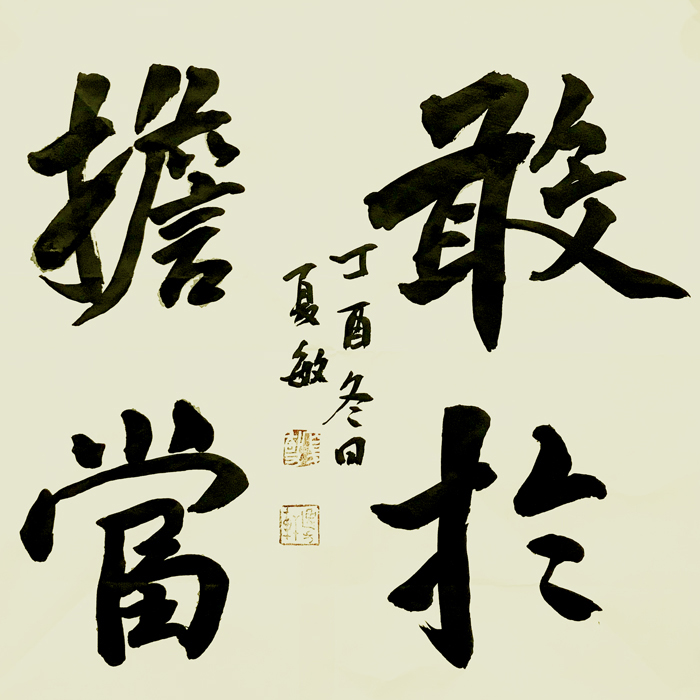 敢於
擔當
丁酉冬日
夏敏